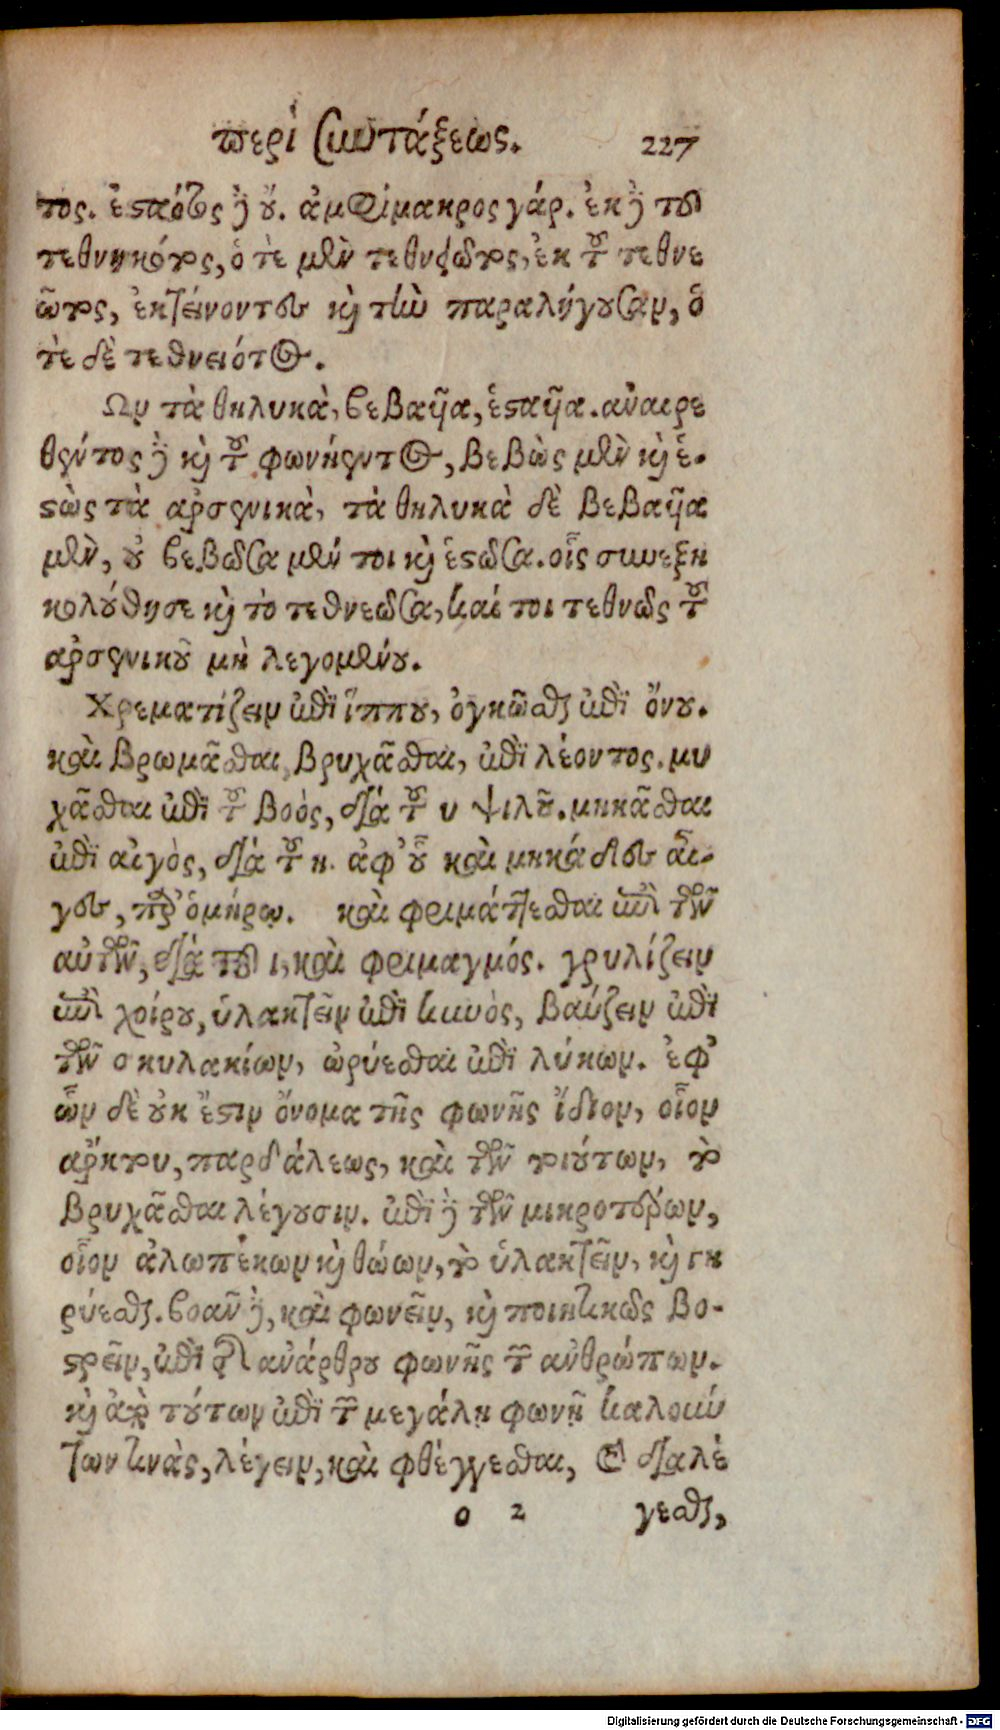 περὶ συντάξεως. 227
τος. ἑσταότος δὲ οὔ. ἀμφίμακρος γάρ. ἐκ δὲ τοῦ
τεθνηκότος, ὁτὲ μὲν τεθνεῶτος, ἐκ τοῦ τεθνε
ῶτος, ἐκτείνοντος καὶ τὴν παραλήγουσαν, ὁ
τὲ δὲ τεθνειότος.
Ων τὰ θηλυκὰ, βεβαυῖα, ἑσταυῖα. ἀναιρε
θέντος δὲ καὶ τοῦ φωνήεντος, βεβὼς μὲν καὶ ἑ-
στὼς τὰ ἀρσενικὰ, τὰ θηλυκὰ δὲ βεβαυῖα
μὲν, οὐ βεβῶσα μέν τοι καὶ ἑστῶσα. οἷς συνεξη
κολούθησε καὶ τὸ τεθνεῶσα, καί τοι τεθνὼς τοῦ
ἀρσενικοῦ μὴ λεγομένου.
Χρεματίζειν ἐπὶ ἵππου, ὀγκᾶσθαι ἐπὶ ὄνου.
καὶ βρωμᾶσθαι, βρυχᾶσθαι, ἐπὶ λέοντος. μυ
χᾶσθαι ἐπὶ τοῦ βοὸς, διὰ τοῦ υ ψιλοῦ. μηκᾶσθαι
ἐπὶ αἰγὸς, διὰ τοῦ η. ἀφ' οὗ καὶ μηκάδες αἶ-
γες, παρ' ὁμήρῳ. καὶ φριμάττεσθαι ἐπὶ τῶν
αὐτῶν, διὰ τοῦ ι, καὶ φριμαγμός. γρυλίζειν
ἐπὶ χοίρου, ὑλακτεῖν ἐπὶ κυνὸς, βαΰζειν ἐπὶ
τῶν σκυλακίων, ὠρύεσθαι ἐπὶ λύκων. ἐφ'
ὧν δὲ οὐκ ἔστιν ὄνομα τῆς φωνῆς ἴδιον, οἷον
ἄρκτου, παρδάλεως, καὶ τῶν τοιούτων, τὸ
βρυχᾶσθαι λέγουσιν. ἐπὶ δὲ τῶν μικροτέρων,
οἷον ἀλωπέκων καὶ θώων, τὸ ὑλακτεῖν, καὶ γη
ρύεσθαι. βοᾶν δὲ, καὶ φωνεῖν, καὶ ποιητικῶς βο-
στρεῖν, ἐπὶ τῆς ἀνάρθρου φωνῆς τῶν ἀνθρώπων.
καὶ ἀπὸ τούτων ἐπὶ τῶν μεγάλῃ φωνῇ καλούν
των τινὰς, λέγειν, καὶ φθέγγεσθαι, καὶ διαλέ
ο 2 γεσθαι,
Digitalisierung gefördert durch die Deutsche Forschungsgemeinschaft - DFG